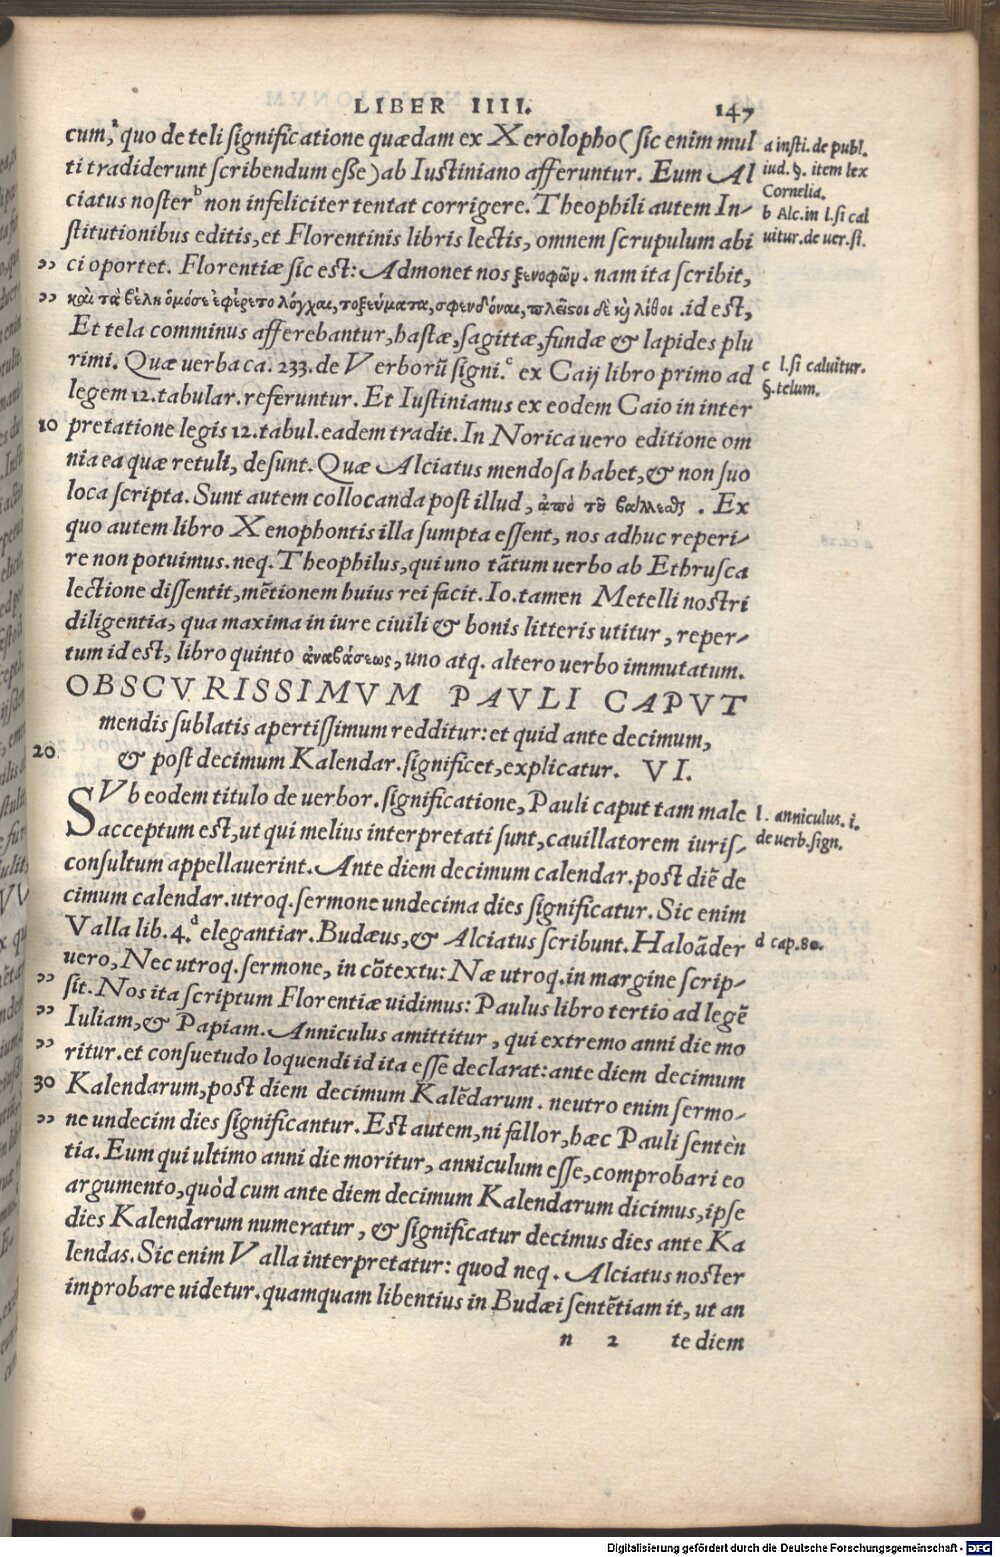 LIBER IIII. 147
cum,ᵃ quo de teli significatione quædam ex Xerolopho (sic enim mul
ti tradiderunt scribendum esse) ab Iustiniano afferuntur. Eum Al
ciatus nosterᵇ non infeliciter tentat corrigere. Theophili autem In-
stitutionibus editis, et Florentinis libris lectis, omnem scrupulum abi
,, ci oportet. Florentiæ sic est: Admonet nos ξενοφῶν. nam ita scribit,
,, καὶ τὰ βέλη ὁμόσε ἐφέρετο λόγχαι, τοξεύματα, σφενδόναι, πλεῖστοι δὲ κ̀ λίθοι .id est,
Et tela comminus afferebantur, hastæ, sagittæ, fundæ & lapides plu
rimi. Quæ uerba ca. 233. de Verborũ signi.ᶜ ex Caij libro primo ad
legem 12. tabular. referuntur. Et Iustinianus ex eodem Caio in inter
10 pretatione legis 12. tabul. eadem tradit. In Norica uero editione om
nia ea quæ retuli, desunt. Quæ Alciatus mendosa habet, & non suo
loca scripta. Sunt autem collocanda post illud, ἀπὸ τοῦ βάλλεσθ . Ex
quo autem libro Xenophontis illa sumpta essent, nos adhuc reperi-
re non potuimus. neq. Theophilus, qui uno tãtum uerbo ab Ethrusca
lectione dissentit, mẽtionem huius rei facit. Io. tamen Metelli nostri
diligentia, qua maxima in iure ciuili & bonis litteris utitur, reper-
tum id est, libro quinto ἀναβάσεως, uno atq. altero uerbo immutatum.
OBSCVRISSIMVM PAVLI CAPVT
mendis sublatis apertissimum redditur: et quid ante decimum,
20 & post decimum Kalendar. significet, explicatur. VI.
SVb eodem titulo de uerbor. significatione, Pauli caput tam male
acceptum est, ut qui melius interpretati sunt, cauillatorem iuris-
consultum appellauerint. Ante diem decimum calendar. post diẽ de
cimum calendar. utroq. sermone undecima dies significatur. Sic enim
Valla lib. 4.ᵈ elegantiar. Budæus, & Alciatus scribunt. Haloãder
uero, Nec utroq. sermone, in cõtextu: Næ utroq. in margine scrip-
,, sit. Nos ita scriptum Florentiæ uidimus: Paulus libro tertio ad legẽ
,, Iuliam, & Papiam. Anniculus amittitur, qui extremo anni die mo
,, ritur. et consuetudo loquendi id ita esse declarat: ante diem decimum
30 Kalendarum, post diem decimum Kalẽdarum. neutro enim sermo-
,, ne undecim dies significantur. Est autem, ni fallor, hæc Pauli senten
tia. Eum qui ultimo anni die moritur, anniculum esse, comprobari eo
argumento, quòd cum ante diem decimum Kalendarum dicimus, ipse
dies Kalendarum numeratur, & significatur decimus dies ante Ka
lendas. Sic enim Valla interpretatur: quod neq. Alciatus noster
improbare uidetur. quamquam libentius in Budæi sentẽtiam it, ut an
n 2 te diem
a insti. de publ.
iud. §. item lex
Cornelia.
b Alc. in l. si cal
uitur. de uer. si.
c l. si caluitur.
§. telum.
l. anniculus. i.
de uerb. sign.
d cap. 80.
Digitalisierung gefördert durch die Deutsche Forschungsgemeinschaft - DFG